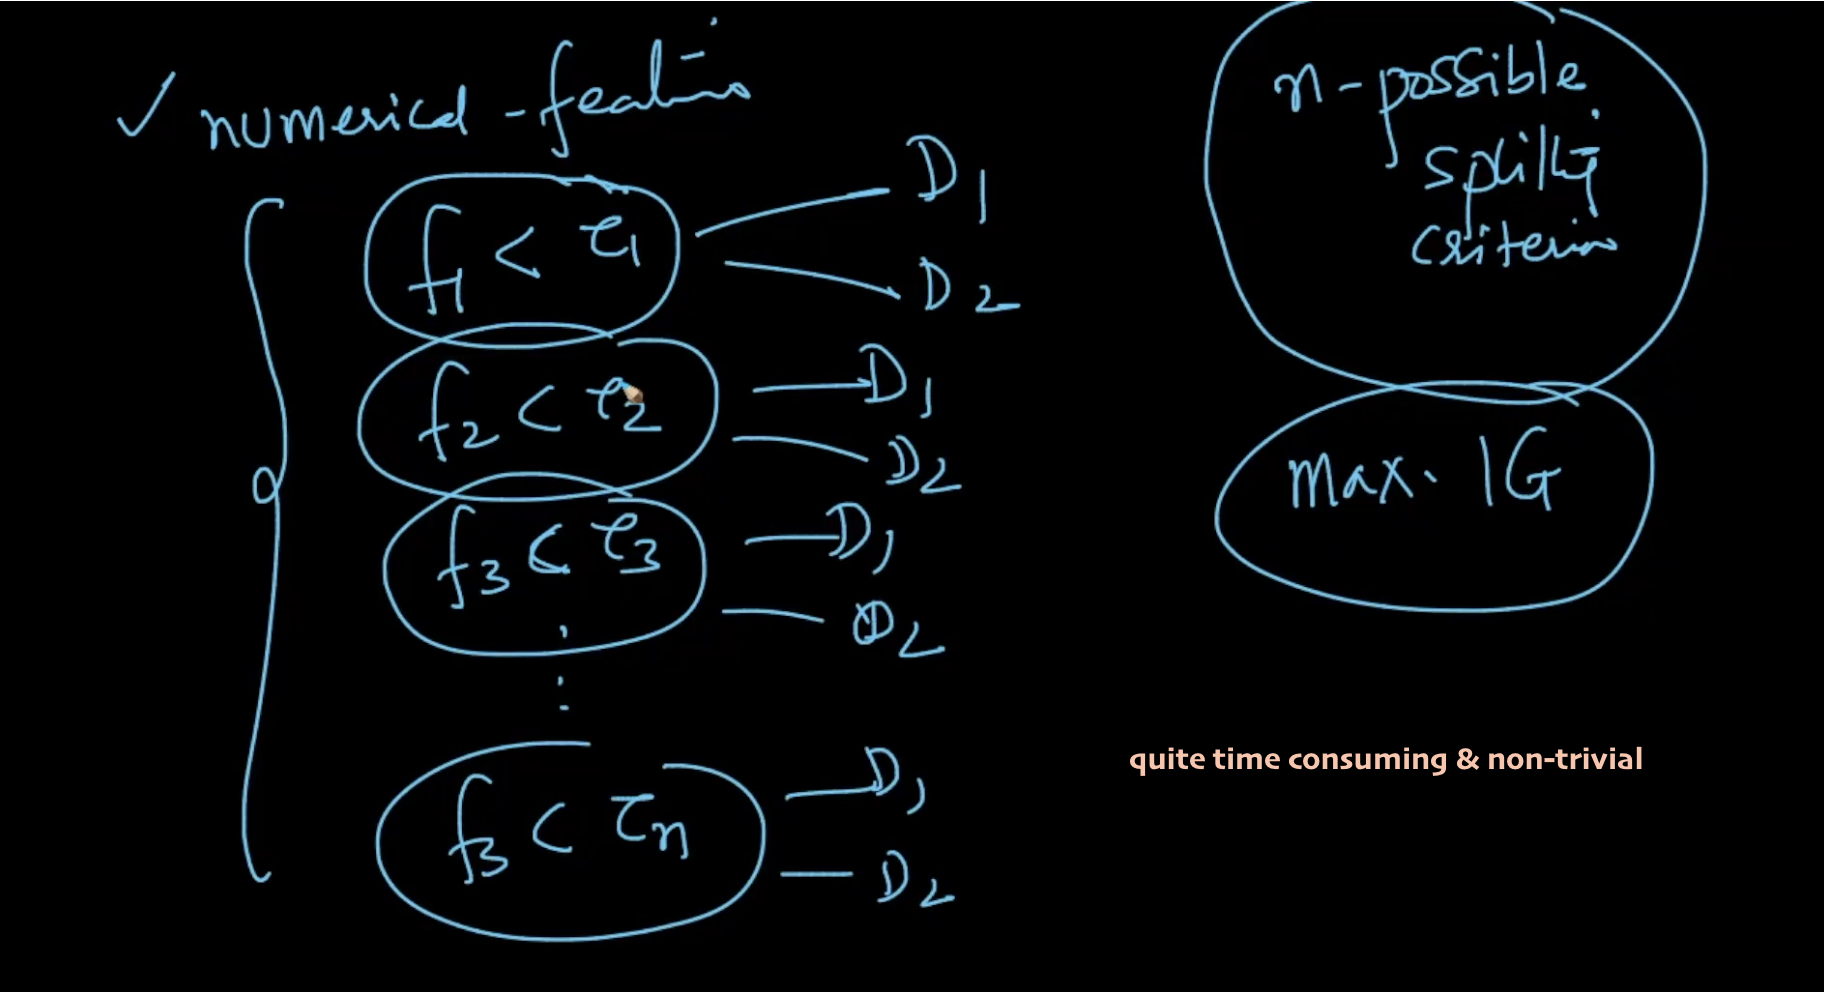 ✓ numerical-features
f1 < τ1
D1
D2
f2 < τ2
D1
D2
f3 < τ3
D1
D2
⋮
f3 < τn
D1
D2
n-possible
splitting
criterion
max. IG
quite time consuming & non-trivial